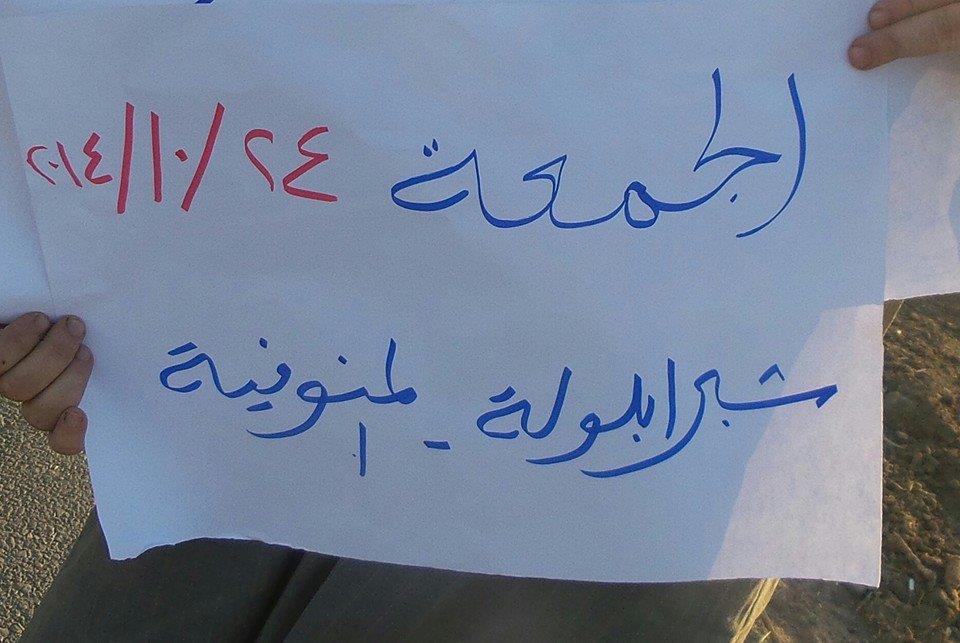 الجمعة ٢٤/١٠/٢٠١٤
شبرا بلولة - المنوفية